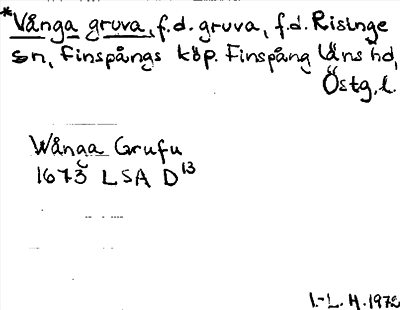 *Vånga gruva, f.d. gruva, f.d. Risinge
sn, Finspångs köp. Finspång läns hd,
Östg. l.
Wånga Grufu
1673 LSA D13
I.-L. H. 1972